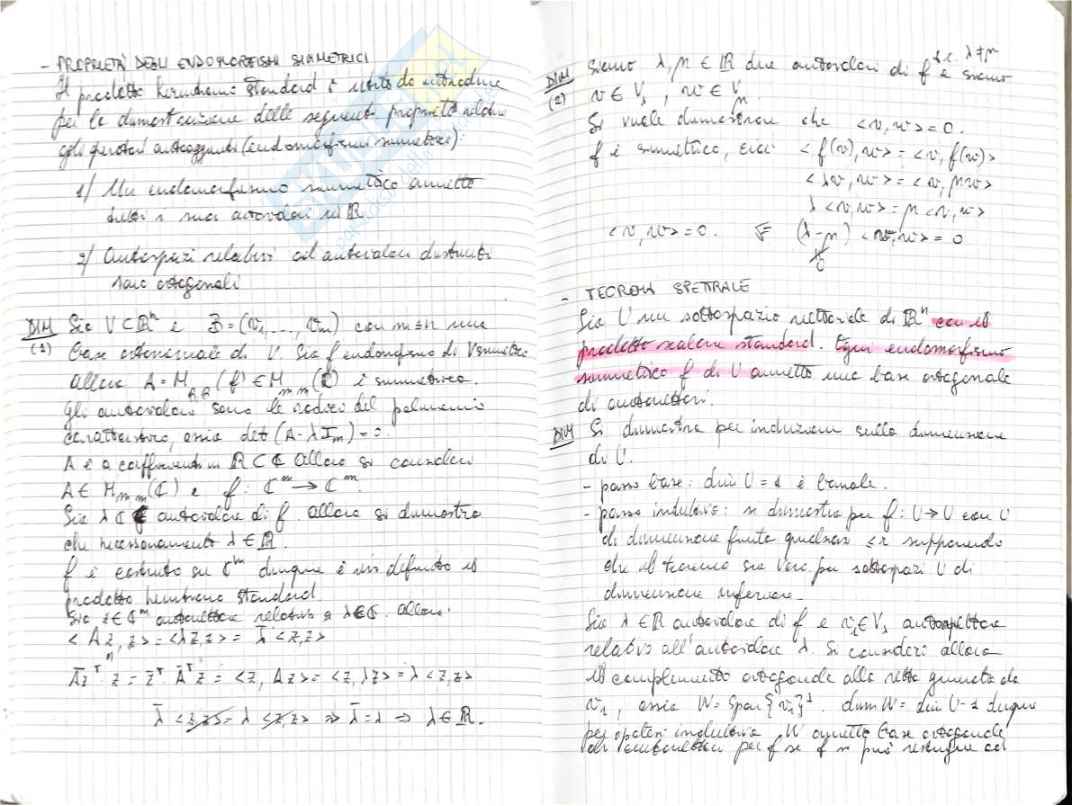 - PROPRIETÀ DEGLI ENDOMORFISMI SIMMETRICI
Il prodotto hermitiano standard è utile da introdurre
per la dimostrazione delle seguenti proprietà relative
agli operatori autoaggiunti (endomorfismi simmetrici)
1) Un endomorfismo simmetrico ammette
tutti i suoi autovalori in ℝ
2) Autospazi relativi ad autovalori distinti
sono ortogonali
DIM (1) Sia V⊂ℝⁿ e B=(v₁, ..., vₘ) con m≤n una
base ortonormale di V. Sia f endomorfismo di V simmetrico
allora A = M_BB(f) ∈ M_mm(ℂ) è simmetrica.
gli autovalori sono le radici del polinomio
caratteristico, ossia det(A-λIₘ)=0.
A è a coefficienti in ℝ⊂ℂ allora si consideri
A ∈ M_mm(ℂ) e f: ℂᵐ→ℂᵐ.
Sia λ∈ℂ autovalore di f. allora si dimostra
che necessariamente λ∈ℝ.
f è esteso su ℂᵐ dunque è ivi definito il
prodotto hermitiano standard.
Sia z∈ℂᵐ autovettore relativo a λ∈ℂ. allora:
<Az, z> = <λz,z> = λ̄ <z,z>
A̅z̅ᵀ·z = z̅ᵀ·A̅ᵀz = <z, Az> = <z, λz> = λ <z,z>
λ̄ <z,z> = λ <z,z> ⇒ λ̄=λ ⇒ λ∈ℝ.
DIM (2) Siano λ,μ ∈ ℝ due autovalori di f t.c. λ≠μ e siano
v ∈ V_λ, w ∈ V_μ.
Si vuole dimostrare che <v,w>=0.
f è simmetrico, cioè <f(v),w> = <v, f(w)>
<λv,w> = <v, μw>
λ<v,w> = μ<v,w>
<v,w>=0. ⇐ (λ-μ) <v,w> = 0
- TEOREMA SPETTRALE
Sia U un sottospazio vettoriale di ℝⁿ con il
prodotto scalare standard. Ogni endomorfismo
simmetrico f di U ammette una base ortogonale
di autovettori.
DIM Si dimostra per induzione sulla dimensione
di U.
- passo base: dim U = 1 è banale.
- passo induttivo: si dimostra per f: U→U con U
di dimensione finita qualsiasi supponendo
che il teorema sia vero per sottospazi U di
dimensione inferiore.
Sia λ∈ℝ autovalore di f e v₁∈V_λ autovettore
relativo all'autovalore λ. Si consideri allora
il complemento ortogonale alla retta generata da
v₁, ossia W = Span{v₁}^⊥. dim W = dim U-1 dunque
per ipotesi induttiva W ammette base ortogonale
di autovettori per f se f si può restringere ad